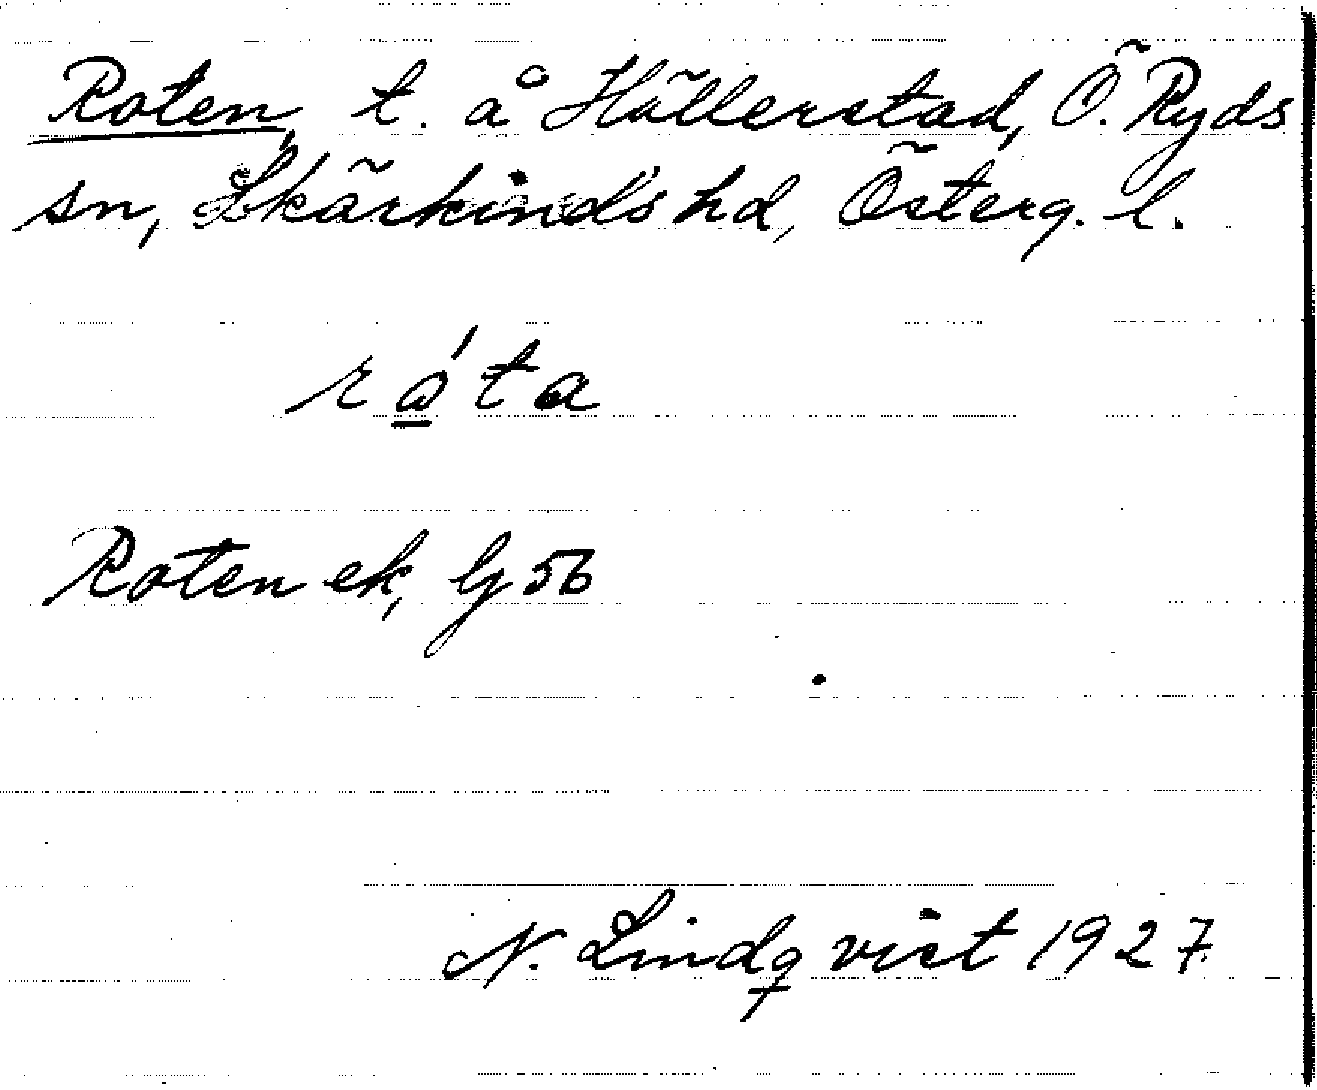 Roten, t. å Hällerstad, Ö. Ryds
sn, Skärkinds hd, Österg. l.
ró̲ta
Roten ek, Gj 56
N. Lindqvist 1927